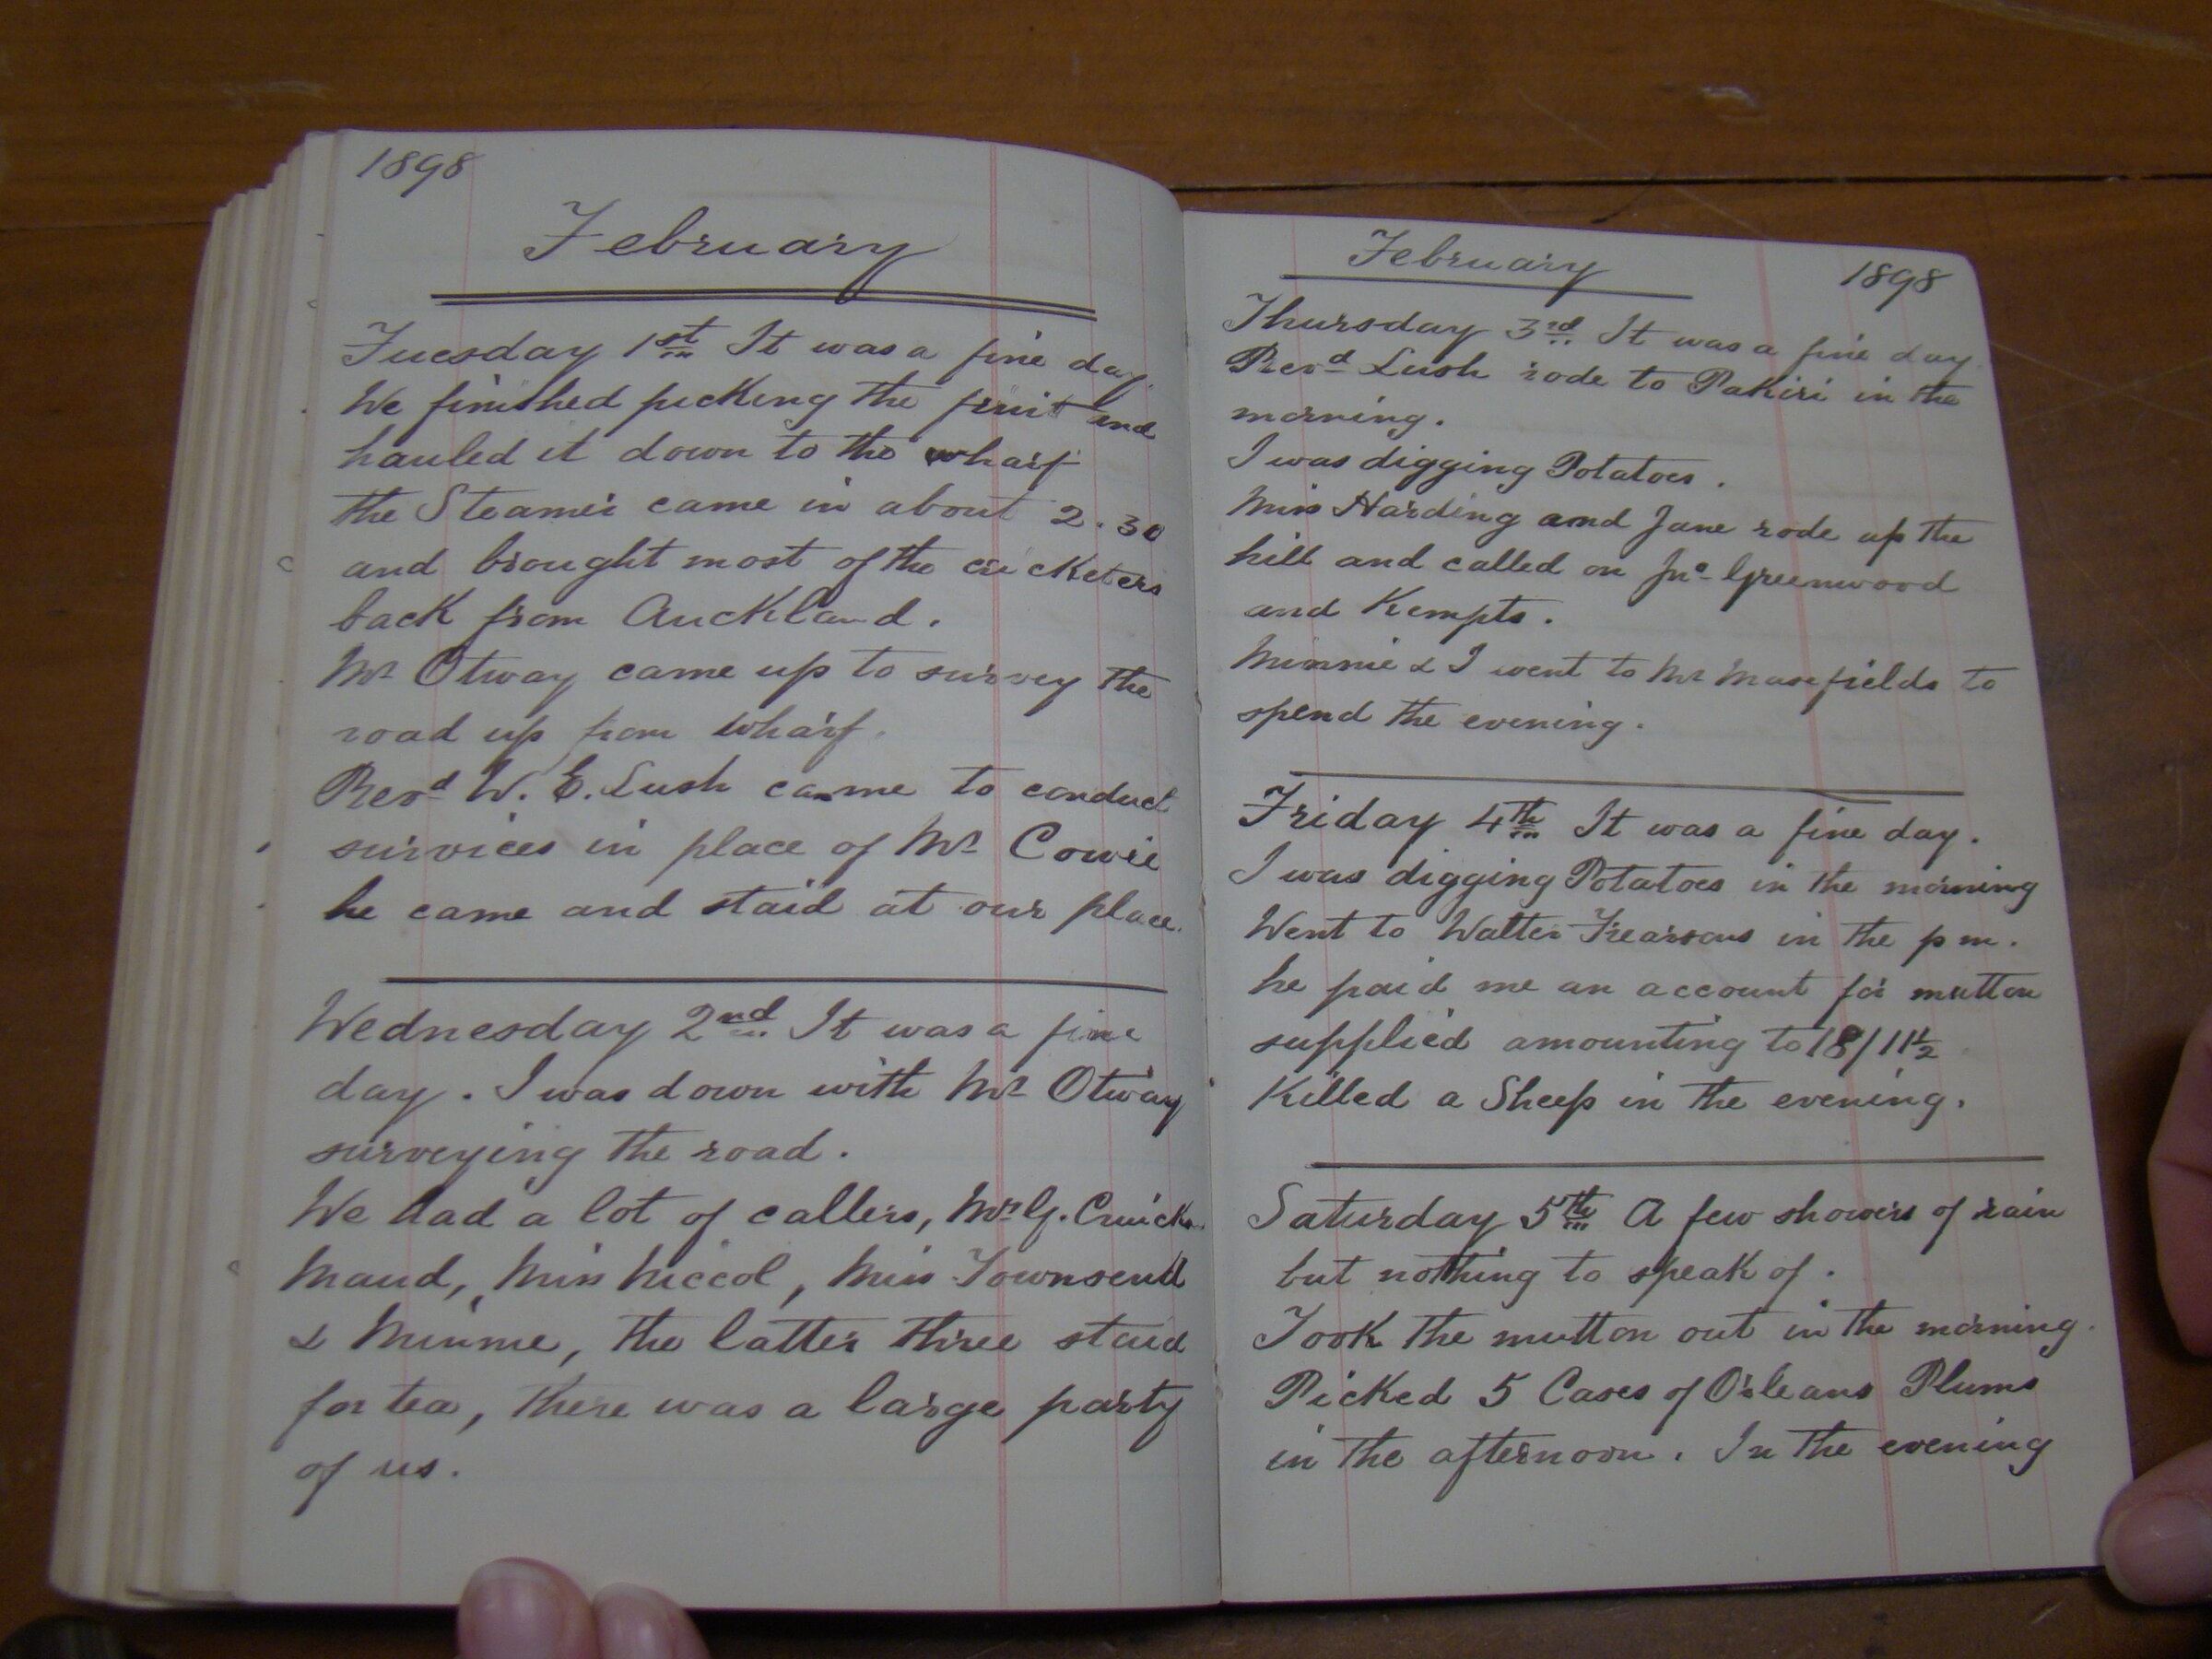 1898
February
Tuesday 1st It was a fine day.
We finished picking the fruit and
hauled it down to the wharf
the Steamer came in about 2.30
and brought most of the cricketers
back from Auckland.
Mr Otway came up to survey the
road up from wharf.
Revd W. E. Lush came to conduct
survices in place of Mr Cowie
he came and staid at our place.
Wednesday 2nd It was a fine
day. I was down with Mr Otway
surveying the road.
We had a lot of callers, Mr G.
Maud, Miss Niccol, Miss Townsend
& Minnie, the latter three staid
for tea, there was a large party
of us.
February 1898
Thursday 3rd It was a fine day
Revd Lush rode to Pakiri in the
morning.
I was digging Potatoes.
Miss Harding and Jane rode up the
hill and called on Jno Greenwood
and Kempts.
Minnie & I went to Mr Masefields to
spend the evening.
Friday 4th It was a fine day.
I was digging Potatoes in the morning
Went to Walter Frearsons in the p m.
he paid me an account for mutton
supplied amounting to 18/11½
Killed a Sheep in the evening.
Saturday 5th A few showers of rain
but nothing to speak of.
Took the mutton out in the morning.
Picked 5 Cases of Orleans Plums
in the afternoon. In the evening